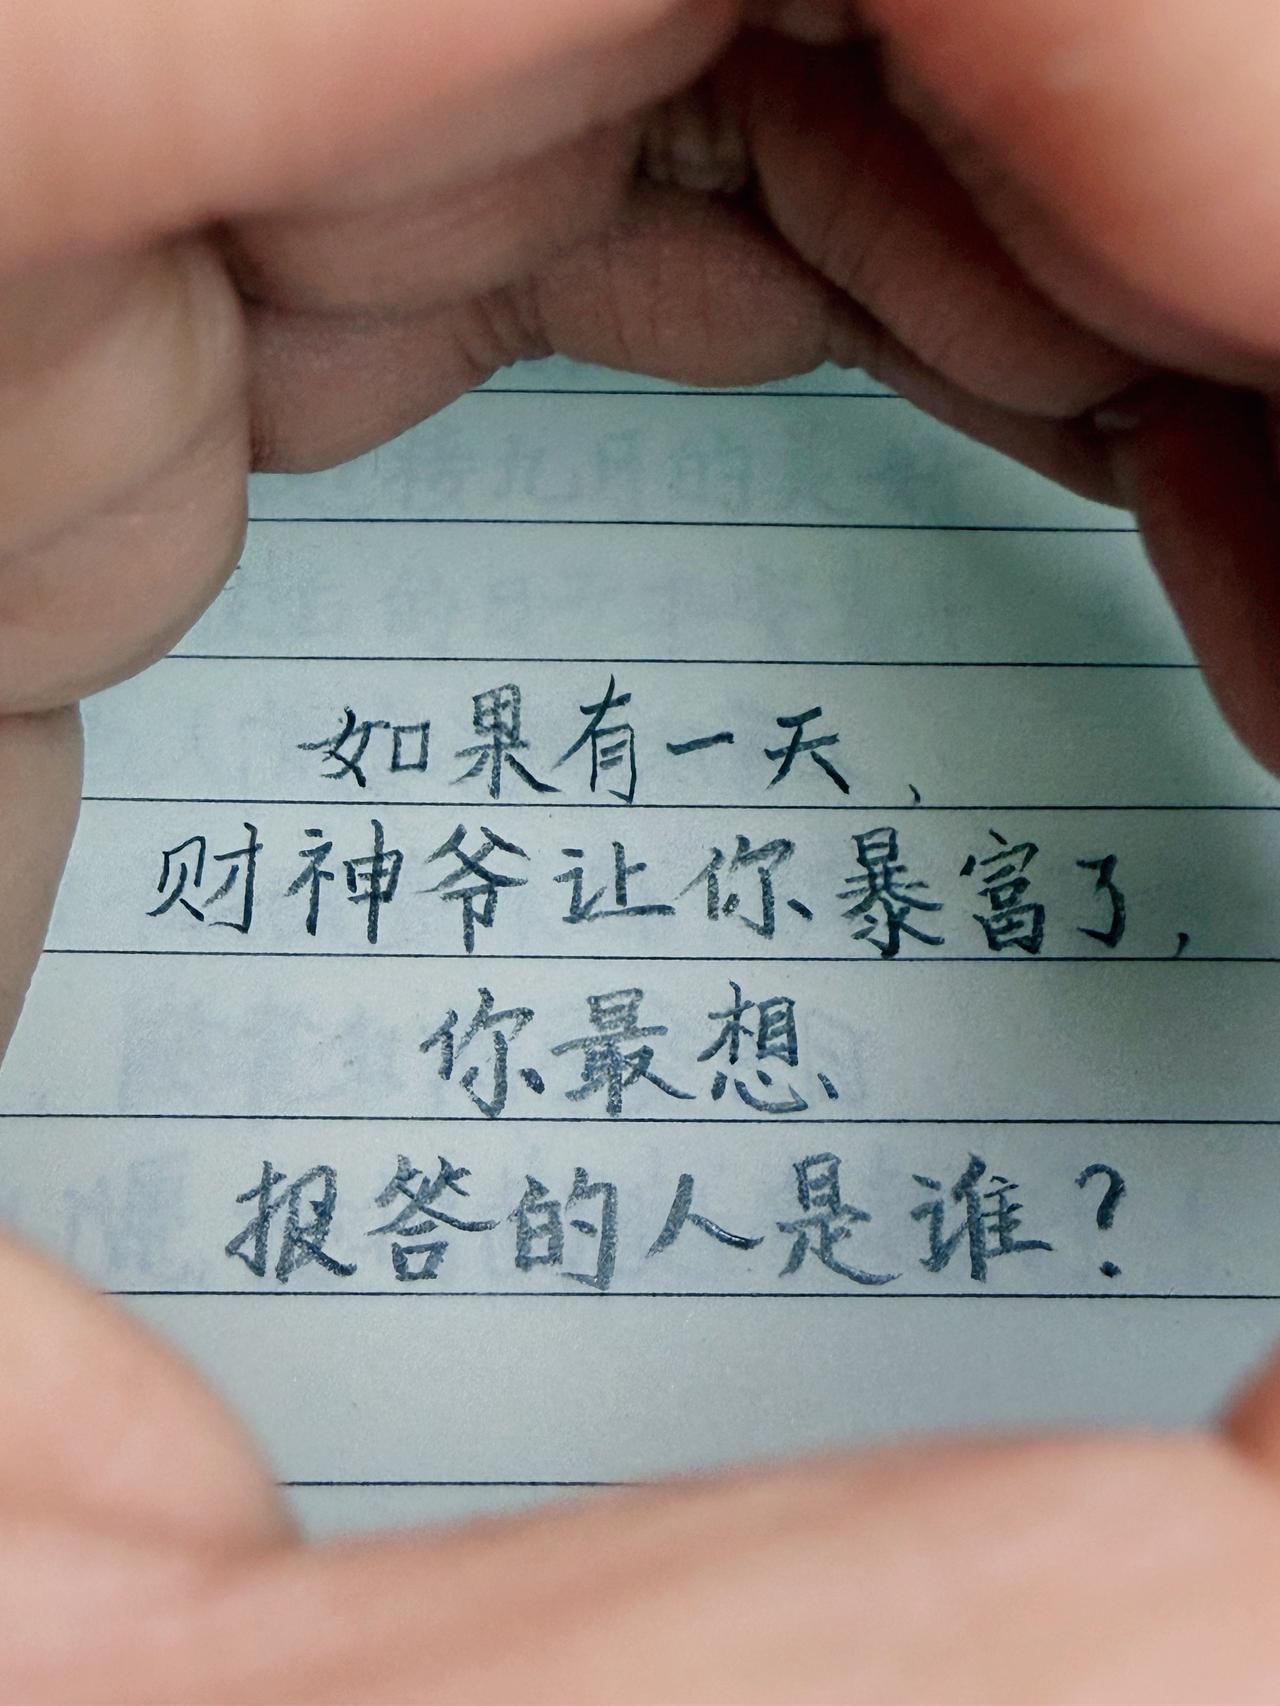 如果有一天，
财神爷让你暴富了，
你最想
报答的人是谁？